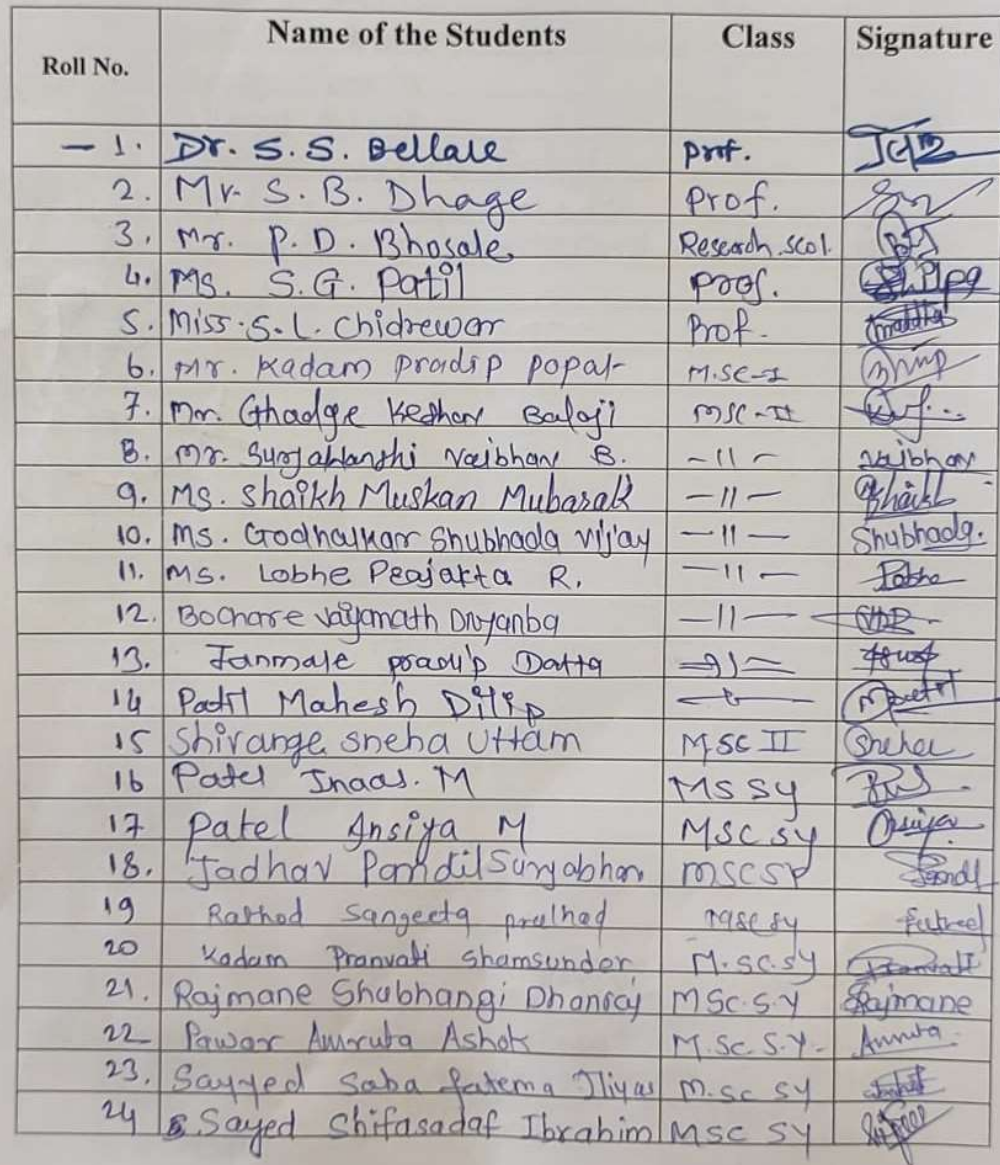 Roll No. Name of the Students Class Signature
- 1. Dr. S. S. Bellale Prof.
2. Mr. S. B. Dhage Prof.
3. Mr. P. D. Bhosale Research scol.
4. Ms. S. G. Patil Prof.
5. Miss. S. L. Chidrewar Prof.
6. Mr. Kadam Pradip popat M.SC-I
7. Mr. Ghadge Keshav Balaji MSC-II
8. Mr. Suryawanshi Vaibhav B. -11- Vaibhav
9. Ms. Shaikh Muskan Mubarak -11- Shaikh
10. Ms. Godhalkar Shubhada Vijay -11- Shubhada.
11. Ms. Lobhe R. -11-
12. Bochare Dnyanba -11-
13. Janmale pradip Datta -11-
14 Patil Mahesh Dilip
15 Shirange sneha Uttam M.SC II Sneha
16 Patel Inaas. M MS SY
17 Patel Ansiya M MSC SY Ansiya
18. Jadhav Pandil Suryabhan MSC SY
19 Rathod Sangeeta pralhad MSC SY
20 Kadam Pranvati Shamsunder M.SC.SY Pranvati
21. Rajmane Shubhangi Dhanraj MSc.S.Y Rajmane
22 Pawar Amruta Ashok M.Sc. S.Y. Amruta
23. Sayyed Saba fatema Iliyas M.sc SY
24 Sayed Shifasadaf Ibrahim MSC SY